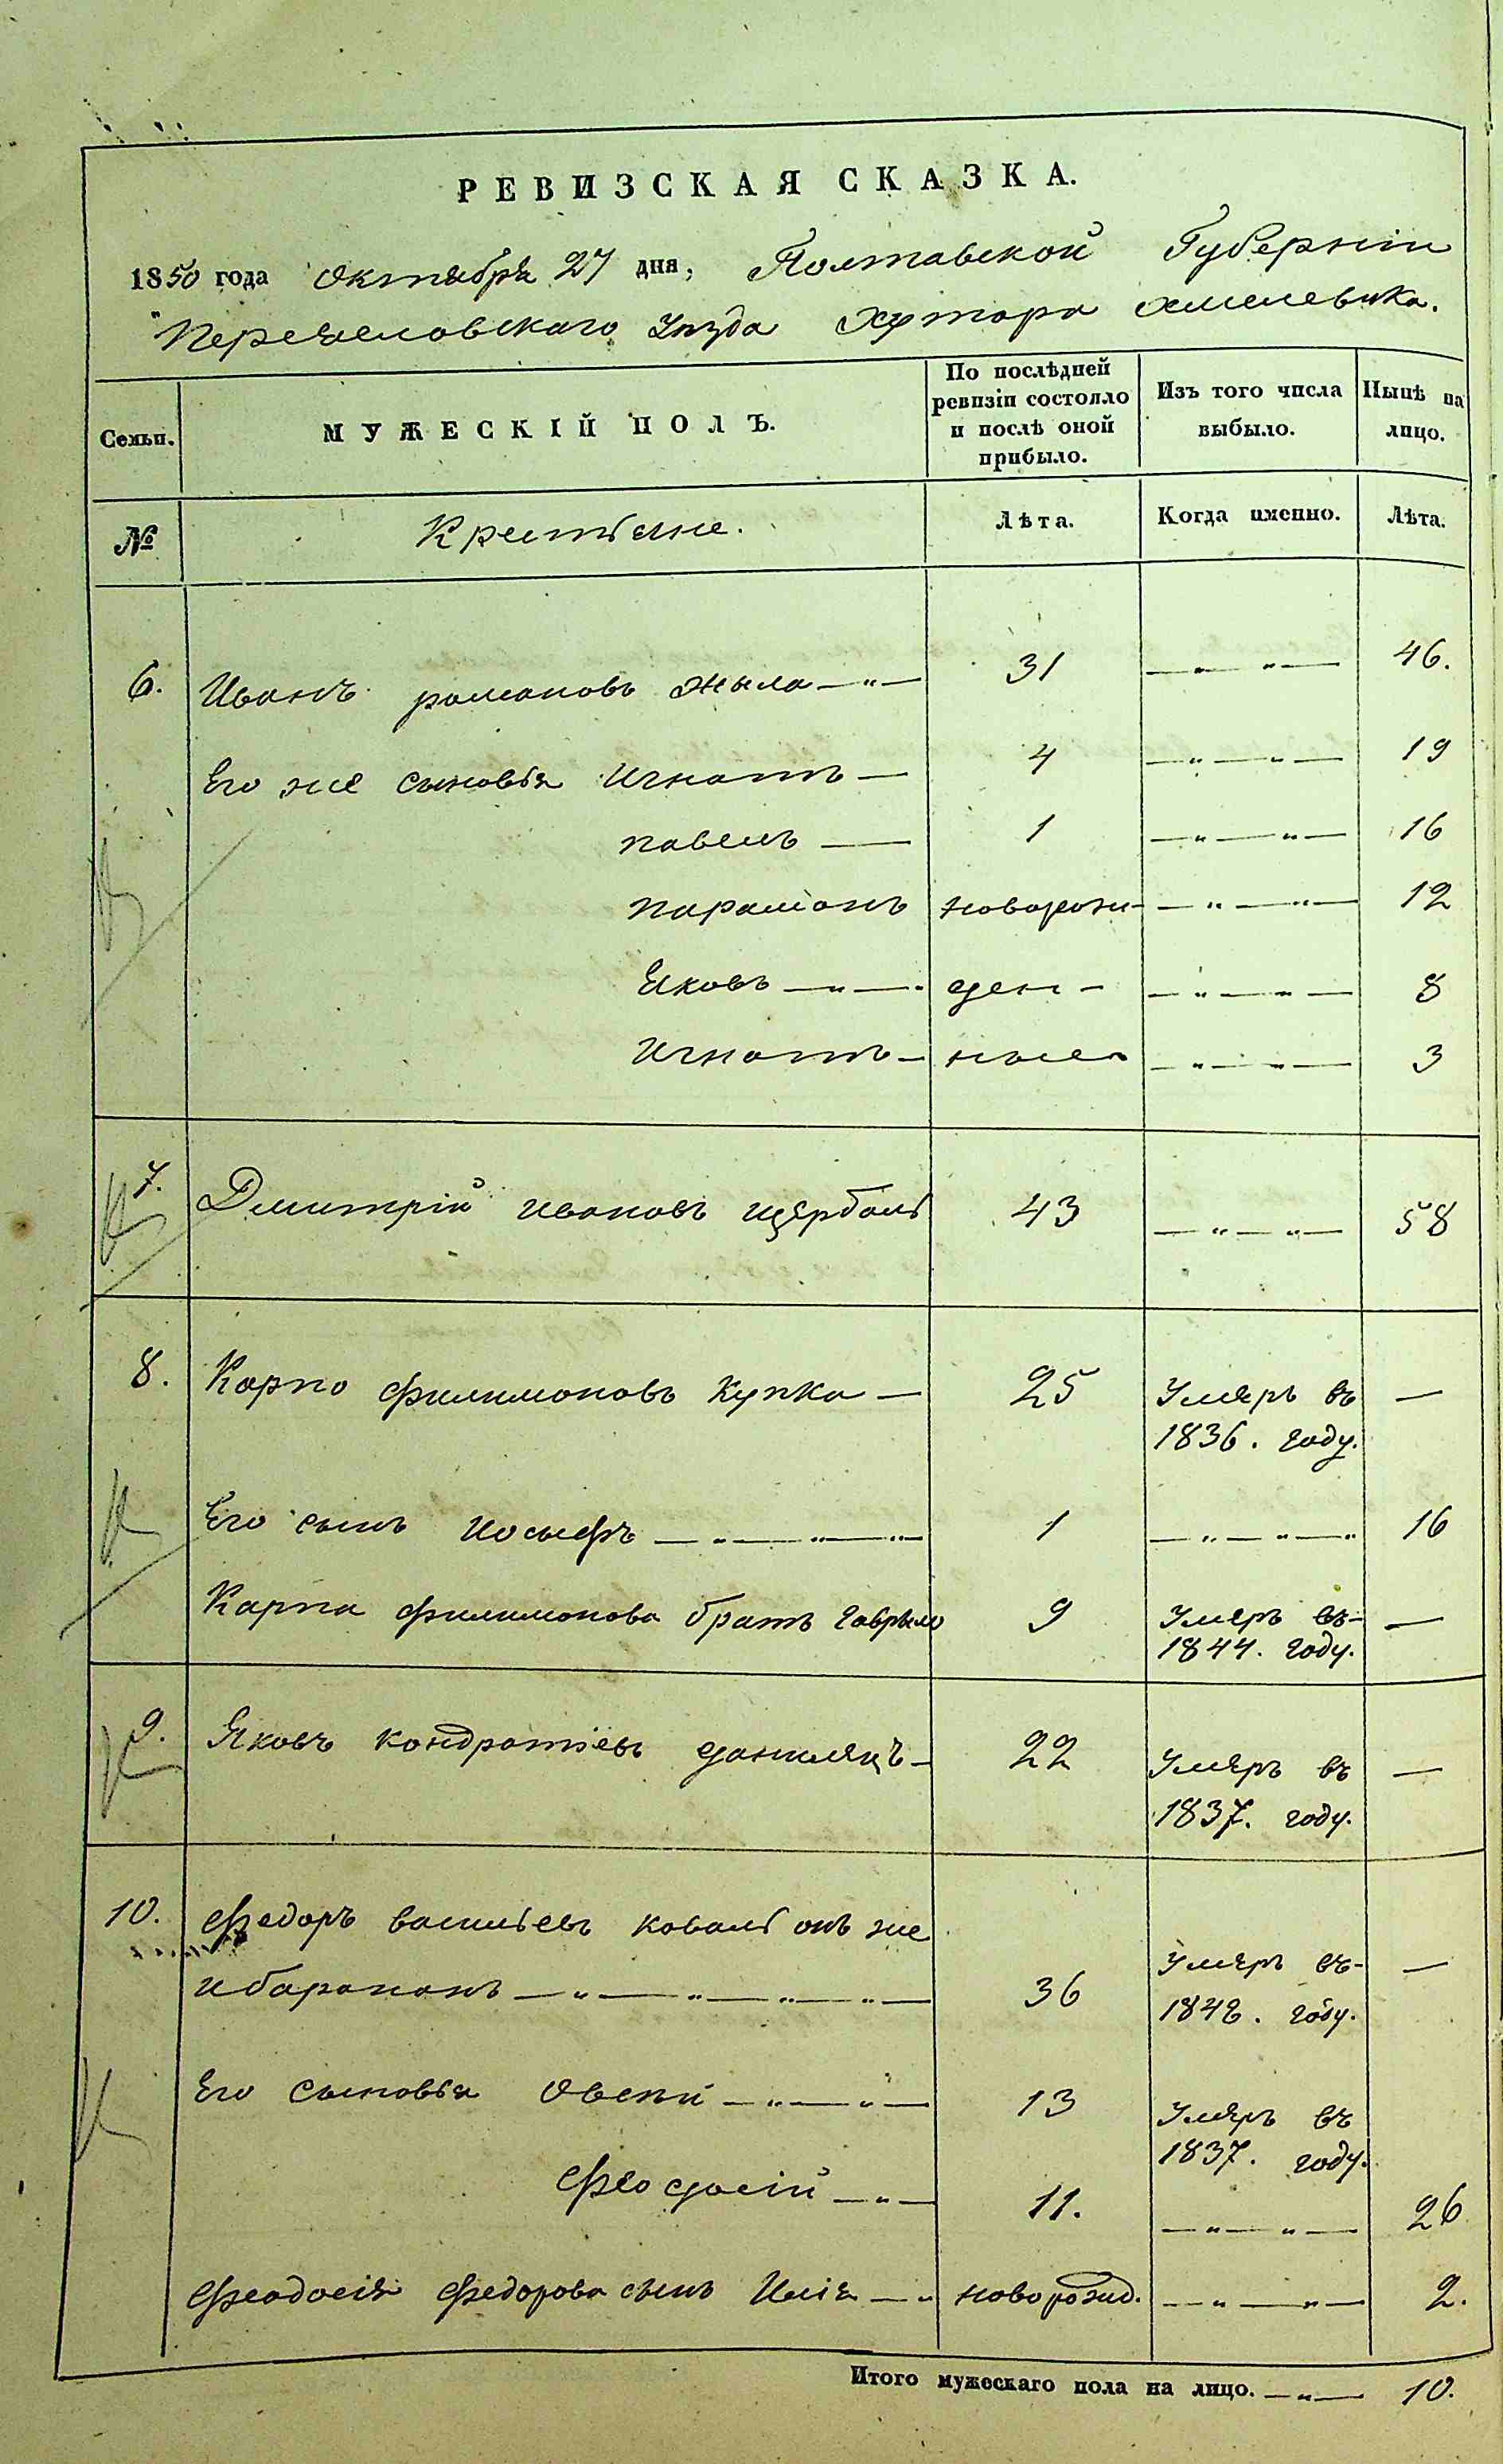 РЕВИЗСКАЯ СКАЗКА.
1850 года октября 27 дня, Полтавской Губерніи
Переяеловскаго Уѣзда Хутора Хмелевика.
Семьи.
МУЖЕСКІЙ ПОЛЪ.
По послѣдней
ревизіи состояло
и послѣ оной
прибыло.
Изъ того числа
выбыло.
Нынѣ на
лицо.
№
Крестьяне.
Лѣта.
Когда именно.
Лѣта.
6. Иванъ романовъ Жыла —„— 31 —„—„— 46.
Его же сыновья Игнатъ — 4 —„—„— 19
павелъ — 1 —„—„— 16
парамонъ новорож- —„—„— 12
Яковъ —„—. ден- —„—„— 8
Игнатъ — ные —„—„— 3
7. Дмитрій ивановъ щербань 43 —„—„— 58
8. Карпо филимоновъ Купка — 25 Умеръ въ —
1836. году.
Его сынъ Иосыфъ —„—„—„ 1 —„—„—„ 16
Карпа филимонова братъ гаврыло 9 Умеръ въ- —
1844. году.
9. Яковъ кондратіевъ данилецъ — 22 Умеръ въ —
1837. году.
10. Федоръ васильевъ коваль онъ же
и баранонъ —„—„—„—„— 36 Умеръ въ- —
1848. году.
Его сыновья Овсѣй —„—„— 13 Умеръ въ
1837. году.
Феодосій —„— 11. —„—„— 26
Феодосія Федорова сынъ Илія —„ новорожд. —„—„— 2.
Итого мужескаго пола на лицо. —„— 10.